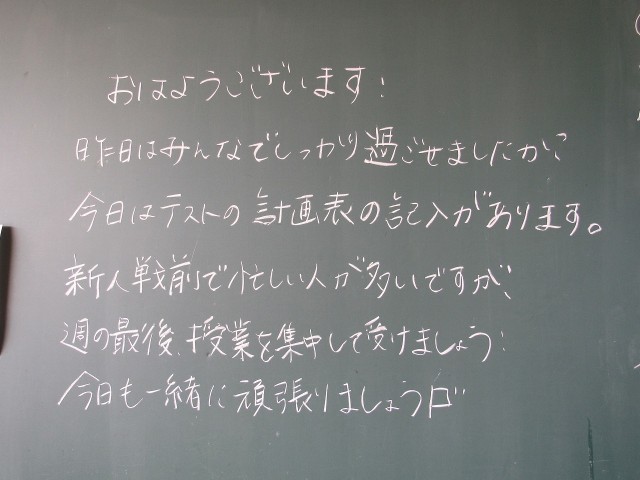 おはようございます!
昨日はみんなでしっかり過ごせましたか?
今日はテストの計画表の記入があります。
新人戦前で忙しい人が多いですが、
週の最後、授業を集中して受けましょう!
今日も一緒に頑張りましょう